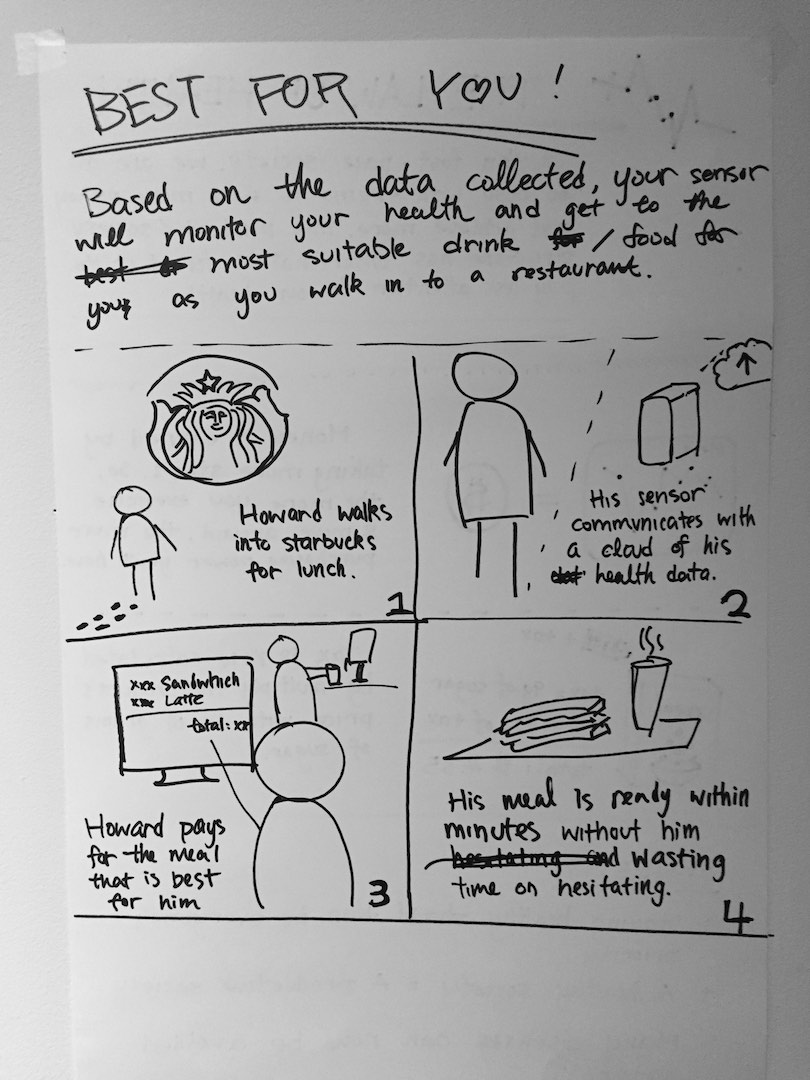 BEST FOR YOU!
Based on the data collected, your sensor
will monitor your health and get to the
best most suitable drink for / food for
you as you walk in to a restaurant.
Howard walks
into starbucks
for lunch.
1
His sensor
communicates with
a cloud of his
health data.
2
xxx Sandwhich
xxx Latte
total: xx
Howard pays
for the meal
that is best
for him
3
His meal is ready within
minutes without him
hesitating and wasting
time on hesitating.
4